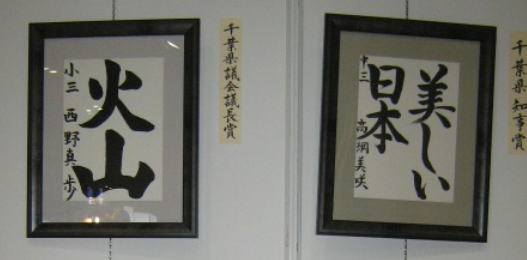 火山
小三 西野真歩
千葉県議会議長賞
美しい
日本
中三 高綱美咲
千葉県知事賞